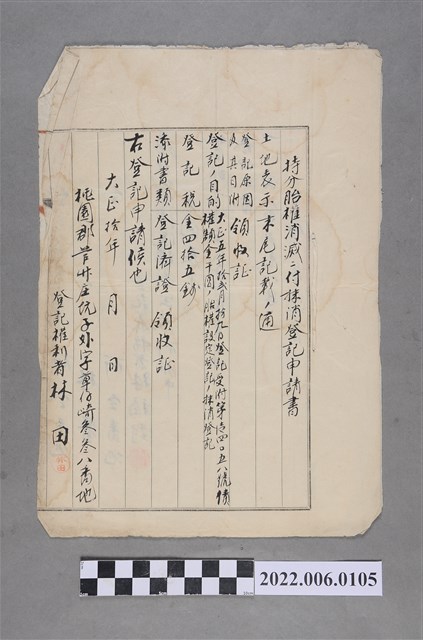 持分胎権消滅ニ付抹消登記申請書
土地表示 末尾記載ノ通
登記原因及其日附 領收証
登記ノ目的 大正五年拾弐月拾九日登記受附第壱四〇五八號債權額金千円ノ胎權設定登記ノ抹消登記
登記税 金四拾五錢
添附書類 登記済證 領收証
右登記申請候也
大正拾年 月 日
桃園郡芦竹庄坑子外字草仔崎叁叁八番地
登記権利者 林 田
2022.006.0105